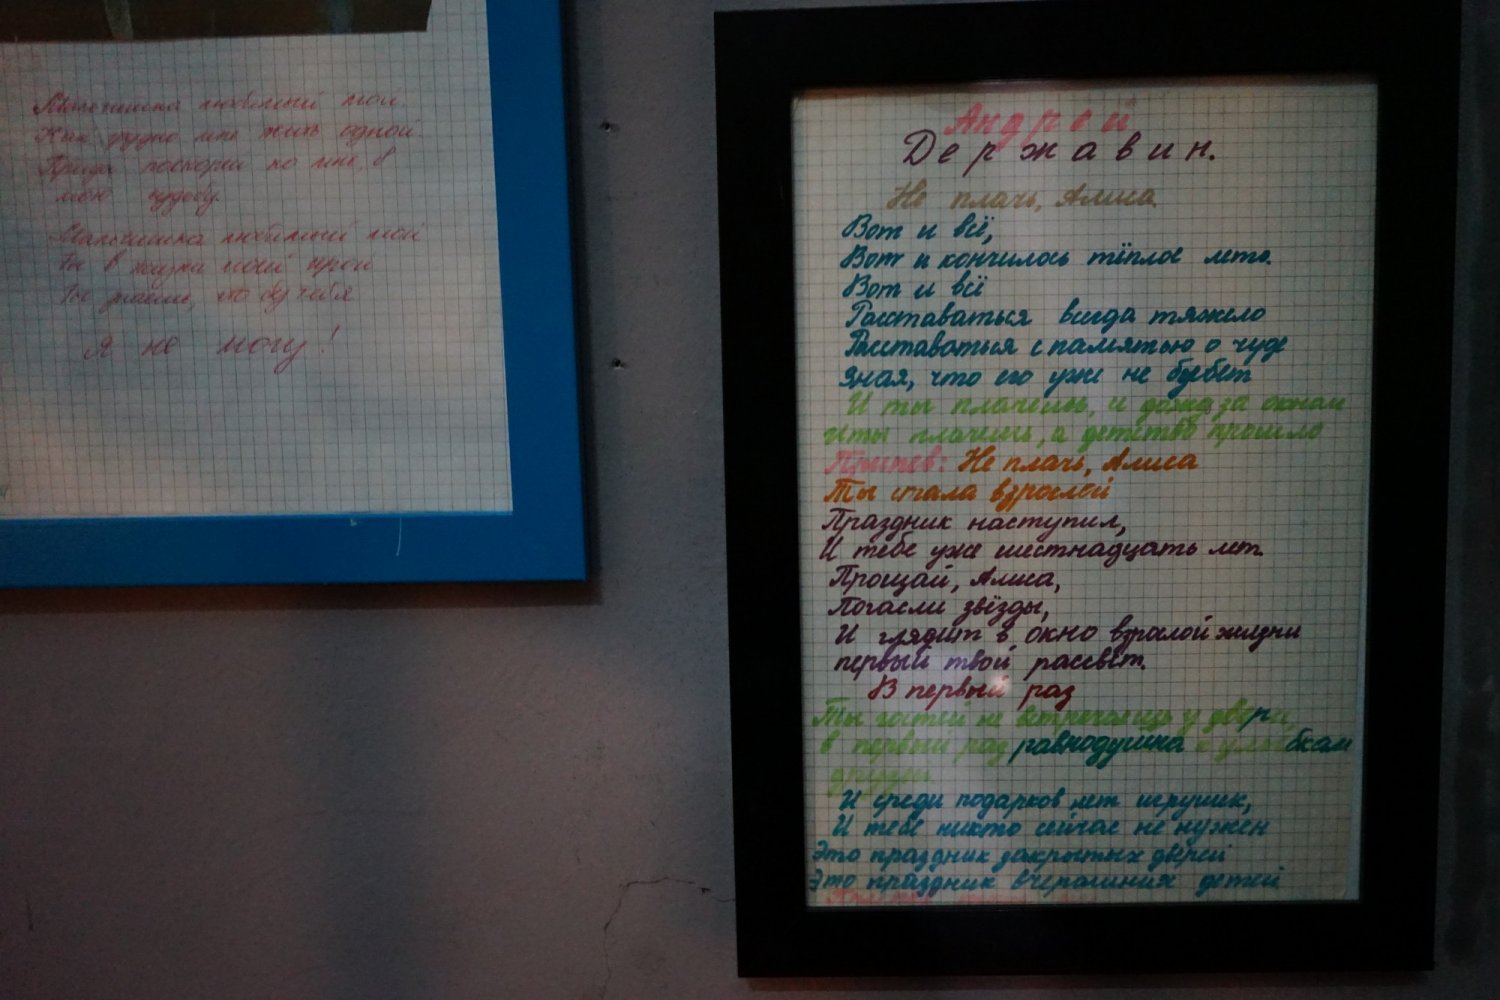 Мальчишка любимый мой
Как трудно мне жить одной.
Приди поскорей ко мне, в
мою судьбу.
Мальчишка любимый мой
Ты в жизни моей герой
Ты знаешь, что без тебя
Я не могу!
Андрей
Державин.
Не плачь, Алиса
Вот и всё,
Вот и кончилось тёплое лето.
Вот и всё
Расставаться всегда тяжело
Расставаться с памятью о чуде
Зная, что его уже не будет
И ты плачешь, и дождь за окном
И ты плачешь, а детство прошло
Припев: Не плачь, Алиса
Ты стала взрослой
Праздник наступил,
И тебе уже шестнадцать лет.
Прощай, Алиса,
Погасли звёзды,
И глядит в окно взрослой жизни
первый твой рассвет.
В первый раз
Ты гостей не встречаешь у двери,
в первый раз равнодушна к улыбкам
друзей.
И среди подарков нет игрушек,
И тебе никто сейчас не нужен
Это праздник закрытых дверей
Это праздник вчерашних детей